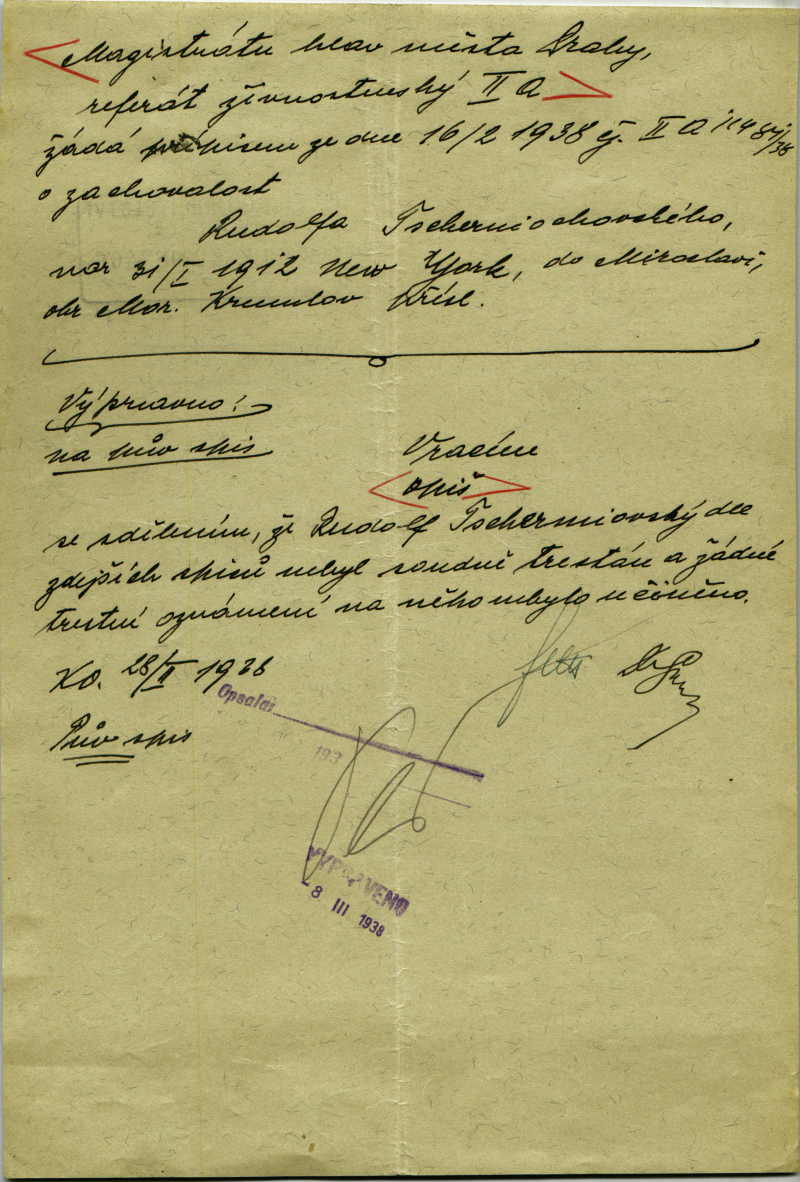 Magistrátu hlav města Prahy,
referát živnostenský II A
žádá přípisem ze dne 16/2 1938 čj. II A
o zachovalost
Rudolfa Tscherniochovského,
nar 31/I 1912 New York, do Miroslavi,
okr Mor. Krumlov přísl.
Výpravno:
na pův spis
Vracíme
opiš
se sdělením, že Rudolf Tscherniovský dle
zdejších spisů nebyl soudně trestán a žádné
trestní oznámení na něho nebylo učiněno.
KO. 28/II 1938
Pův spis
Opsala:
193
VYPRAVENO
-8 III 1938